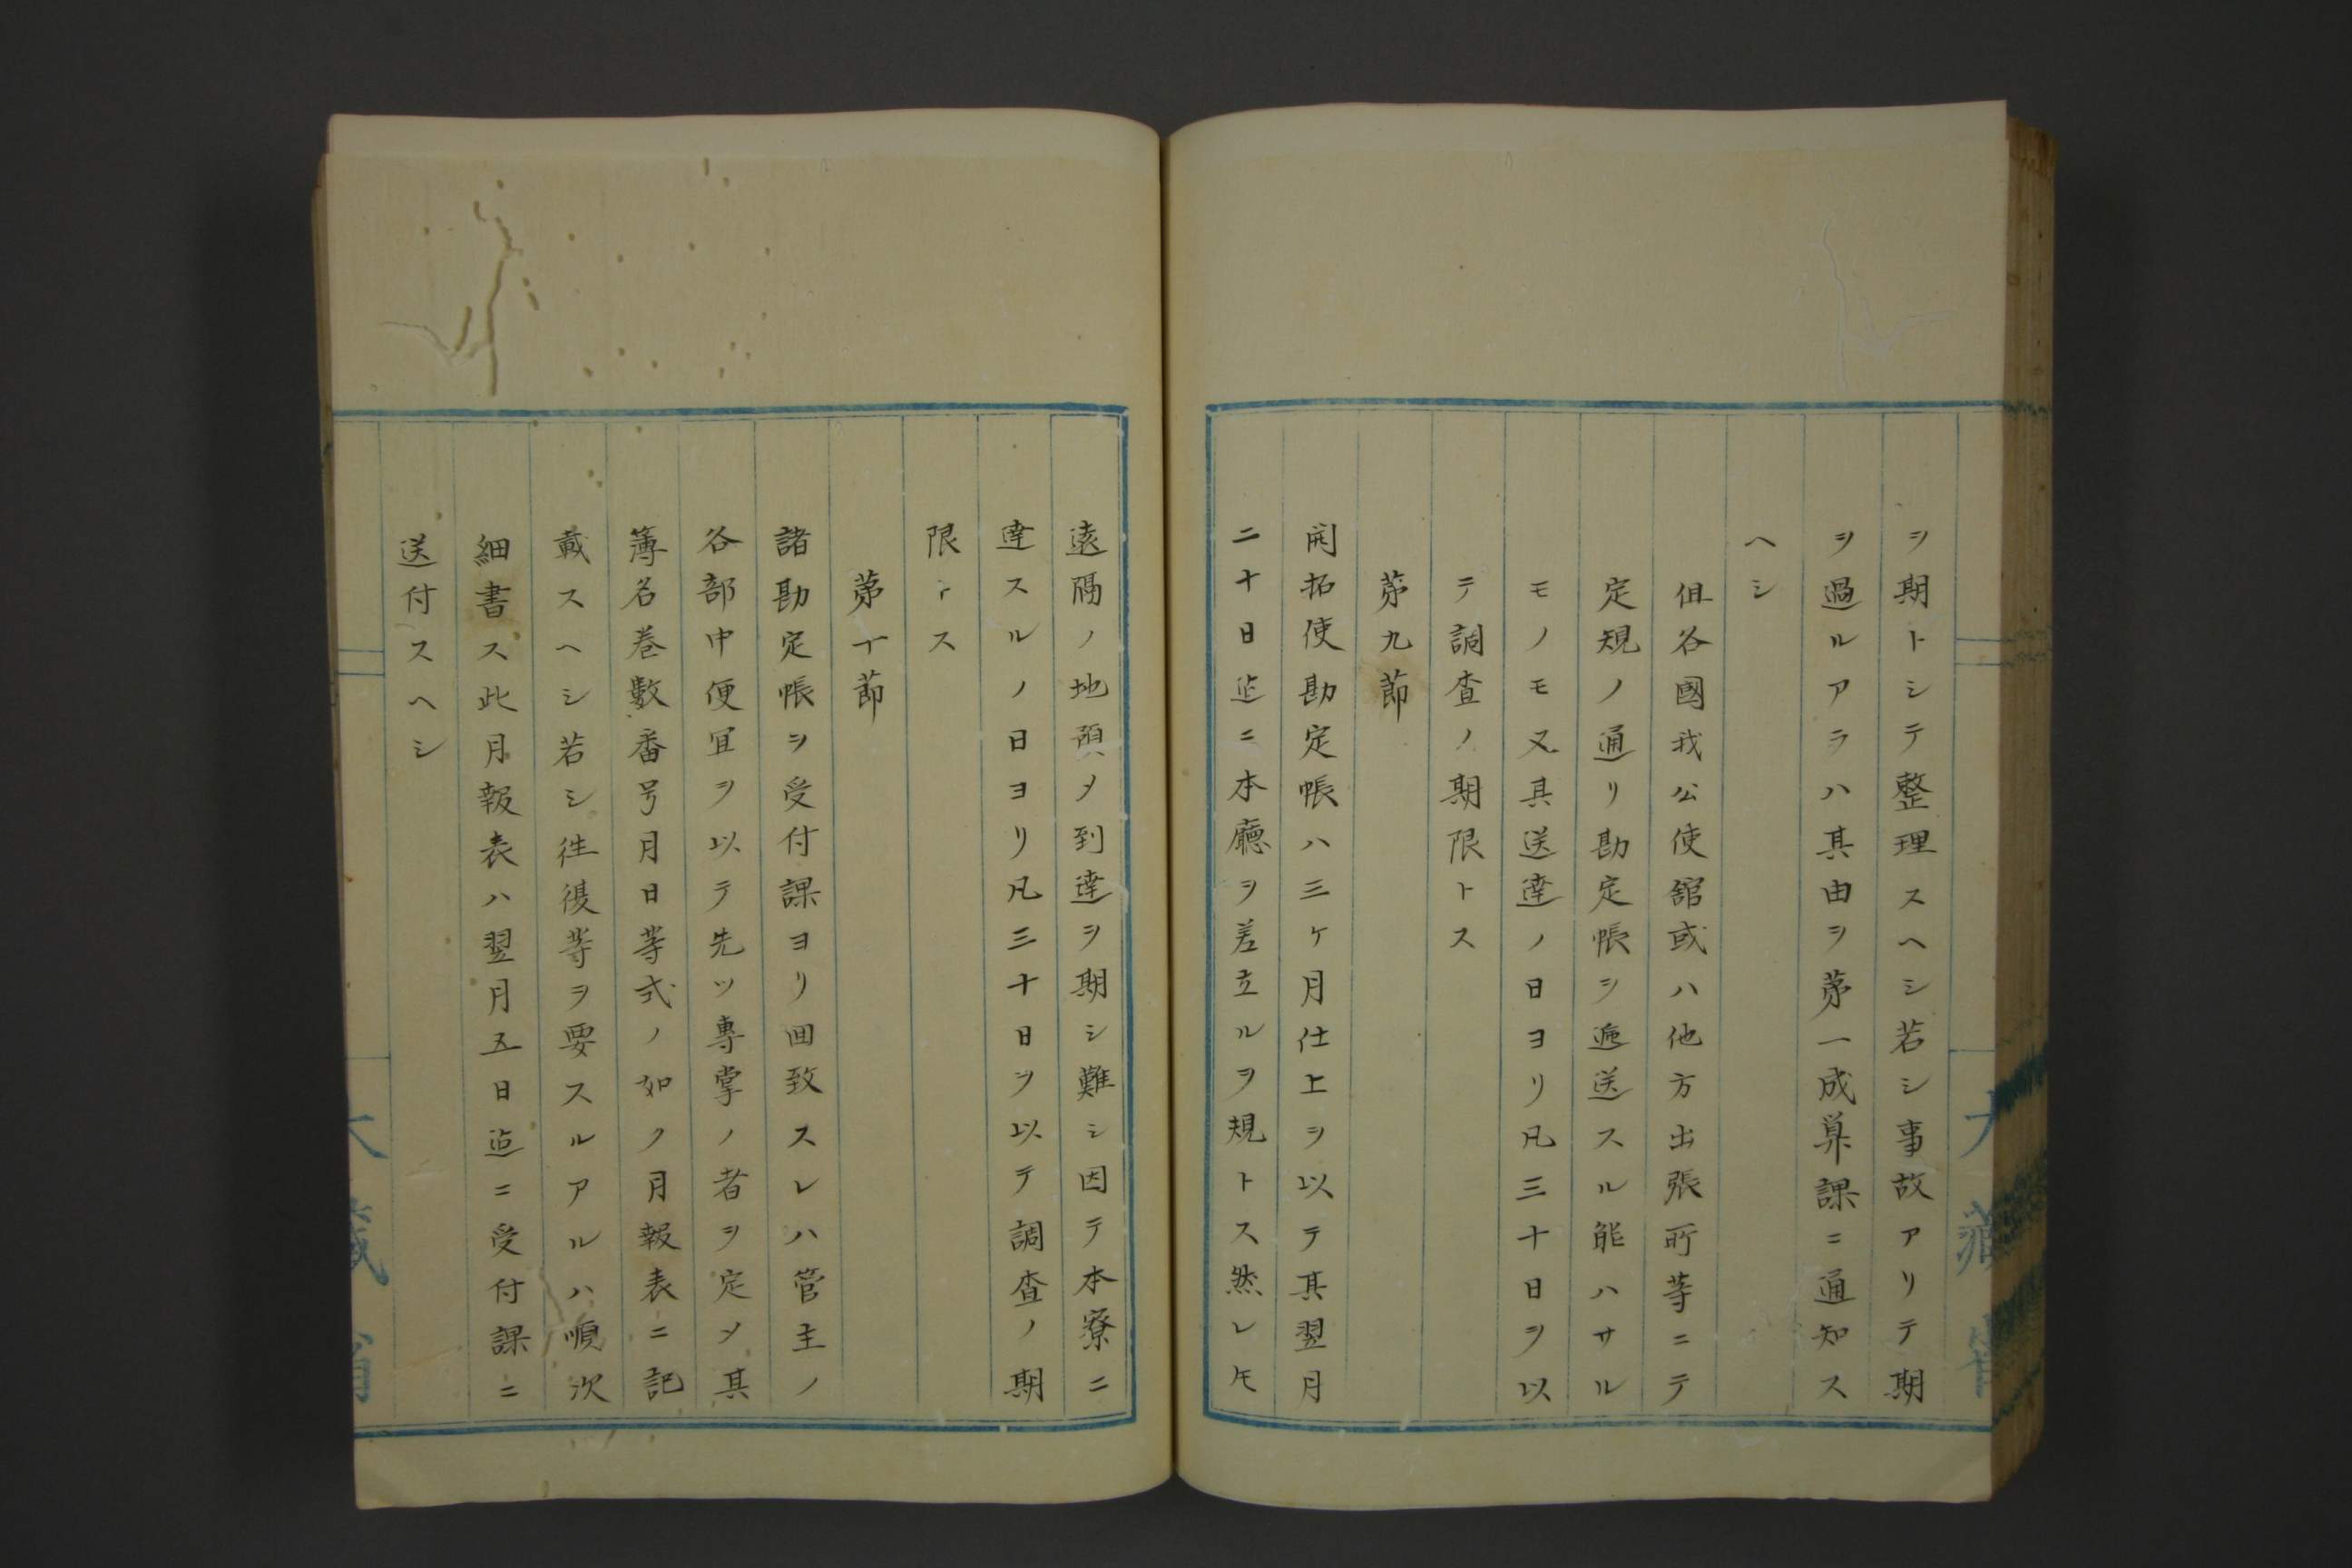 ヲ期トシテ整理スヘシ若シ事故アリテ期
ヲ過ルアラハ其由ヲ第一成算課ニ通知ス
ヘシ
但各國我公使舘或ハ他方出張所等ニテ
定規ノ通リ勘定帳ヲ逓送スル能ハサル
モノモ又其送達ノ日ヨリ凡三十日ヲ以
テ調査ノ期限トス
第九節
開拓使勘定帳ハ三ケ月仕上ヲ以テ其翌月
二十日迄ニ本廳ヲ差立ルヲ規トス然レ𪜈
遠隔ノ地預メ到達ヲ期シ難シ因テ本寮ニ
達スルノ日ヨリ凡三十日ヲ以テ調査ノ期
限トス
第十節
諸勘定帳ヲ受付課ヨリ回致スレハ管主ノ
各部中便宜ヲ以テ先ツ專掌ノ者ヲ定メ其
簿名巻數番号月日等式ノ如ク月報表ニ記
載スヘシ若シ往復等ヲ要スルアルハ順次
細書ス此月報表ハ翌月五日迄ニ受付課ニ
送付スヘシ
大藏省
大藏省